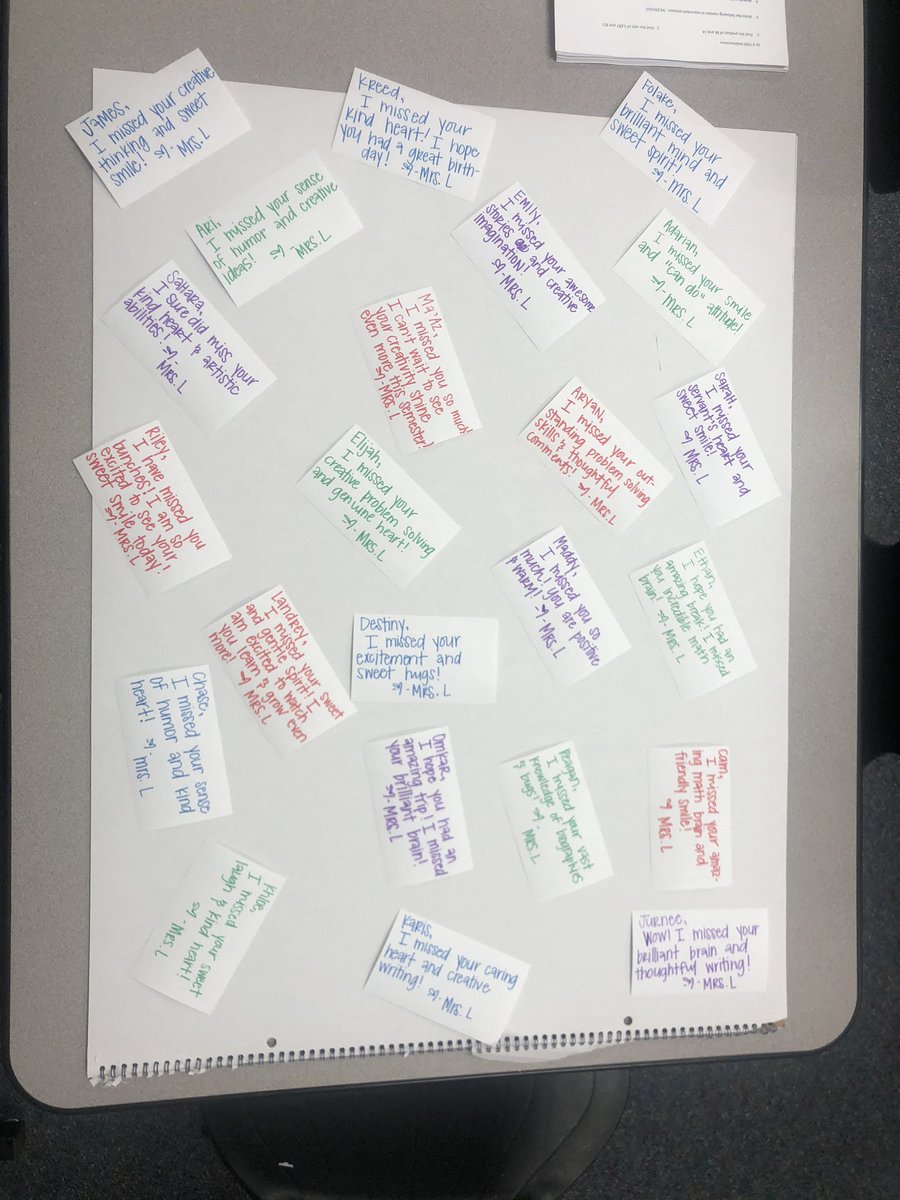 James,
I missed your creative
thinking and sweet
smile!
-Mrs. L
Kreed,
I missed your
kind heart! I hope
you had a great birth-
day! -Mrs. L
Folake,
I missed your
brilliant mind and
sweet spirit!
-Mrs. L
Ari,
I missed your sense
of humor and creative
ideas!
-Mrs. L
Emily,
I missed your awesome
stories and creative
imagination!
-Mrs. L
Adarian,
I missed your smile
and "can do" attitude!
-Mrs. L
Sahara,
I sure did miss your
kind heart & artistic
abilities!
-Mrs. L
Ma'Az,
I missed you so much!
I can't wait to see
your creativity shine
even more this semester!
-Mrs. L
Aryan,
I missed your out-
standing problem solving
skills & thoughtful
comments! -Mrs. L
Sarah,
I missed your
servant's heart and
sweet smile!
Mrs. L
Riley,
I have missed you
bunches! I am so
excited to see your
sweet smile today!
-Mrs. L
Elijah,
I missed your
creative problem solving
and genuine heart!
-Mrs. L
Maddy,
I missed you so
much! You are positive
& warm!
-Mrs. L
Ethan,
I hope you had an
amazing break! I missed
you incredible math
brain! -Mrs. L
Landrey,
I missed your sweet
and gentle spirit! I
am excited to watch
you learn & grow even
more! Mrs. L
Destiny,
I missed your
excitement and
sweet hugs!
-Mrs. L
Chase,
I missed your sense
of humor and kind
heart! -Mrs. L
Omkar,
I hope you had an
amazing trip! I missed
your brilliant brain!
-Mrs. L
Reagan,
I missed your vast
knowledge of biographies
& bugs -
Mrs. L
Cam,
I missed your amaz-
ing math brain and
friendly smile!
Mrs. L
Khloe,
I missed your sweet
laugh & kind heart!
-Mrs. L
Karis,
I missed your caring
heart and creative
writing! -Mrs. L
Jurnee,
Wow! I missed your
brilliant brain and
thoughtful writing!
-Mrs. L